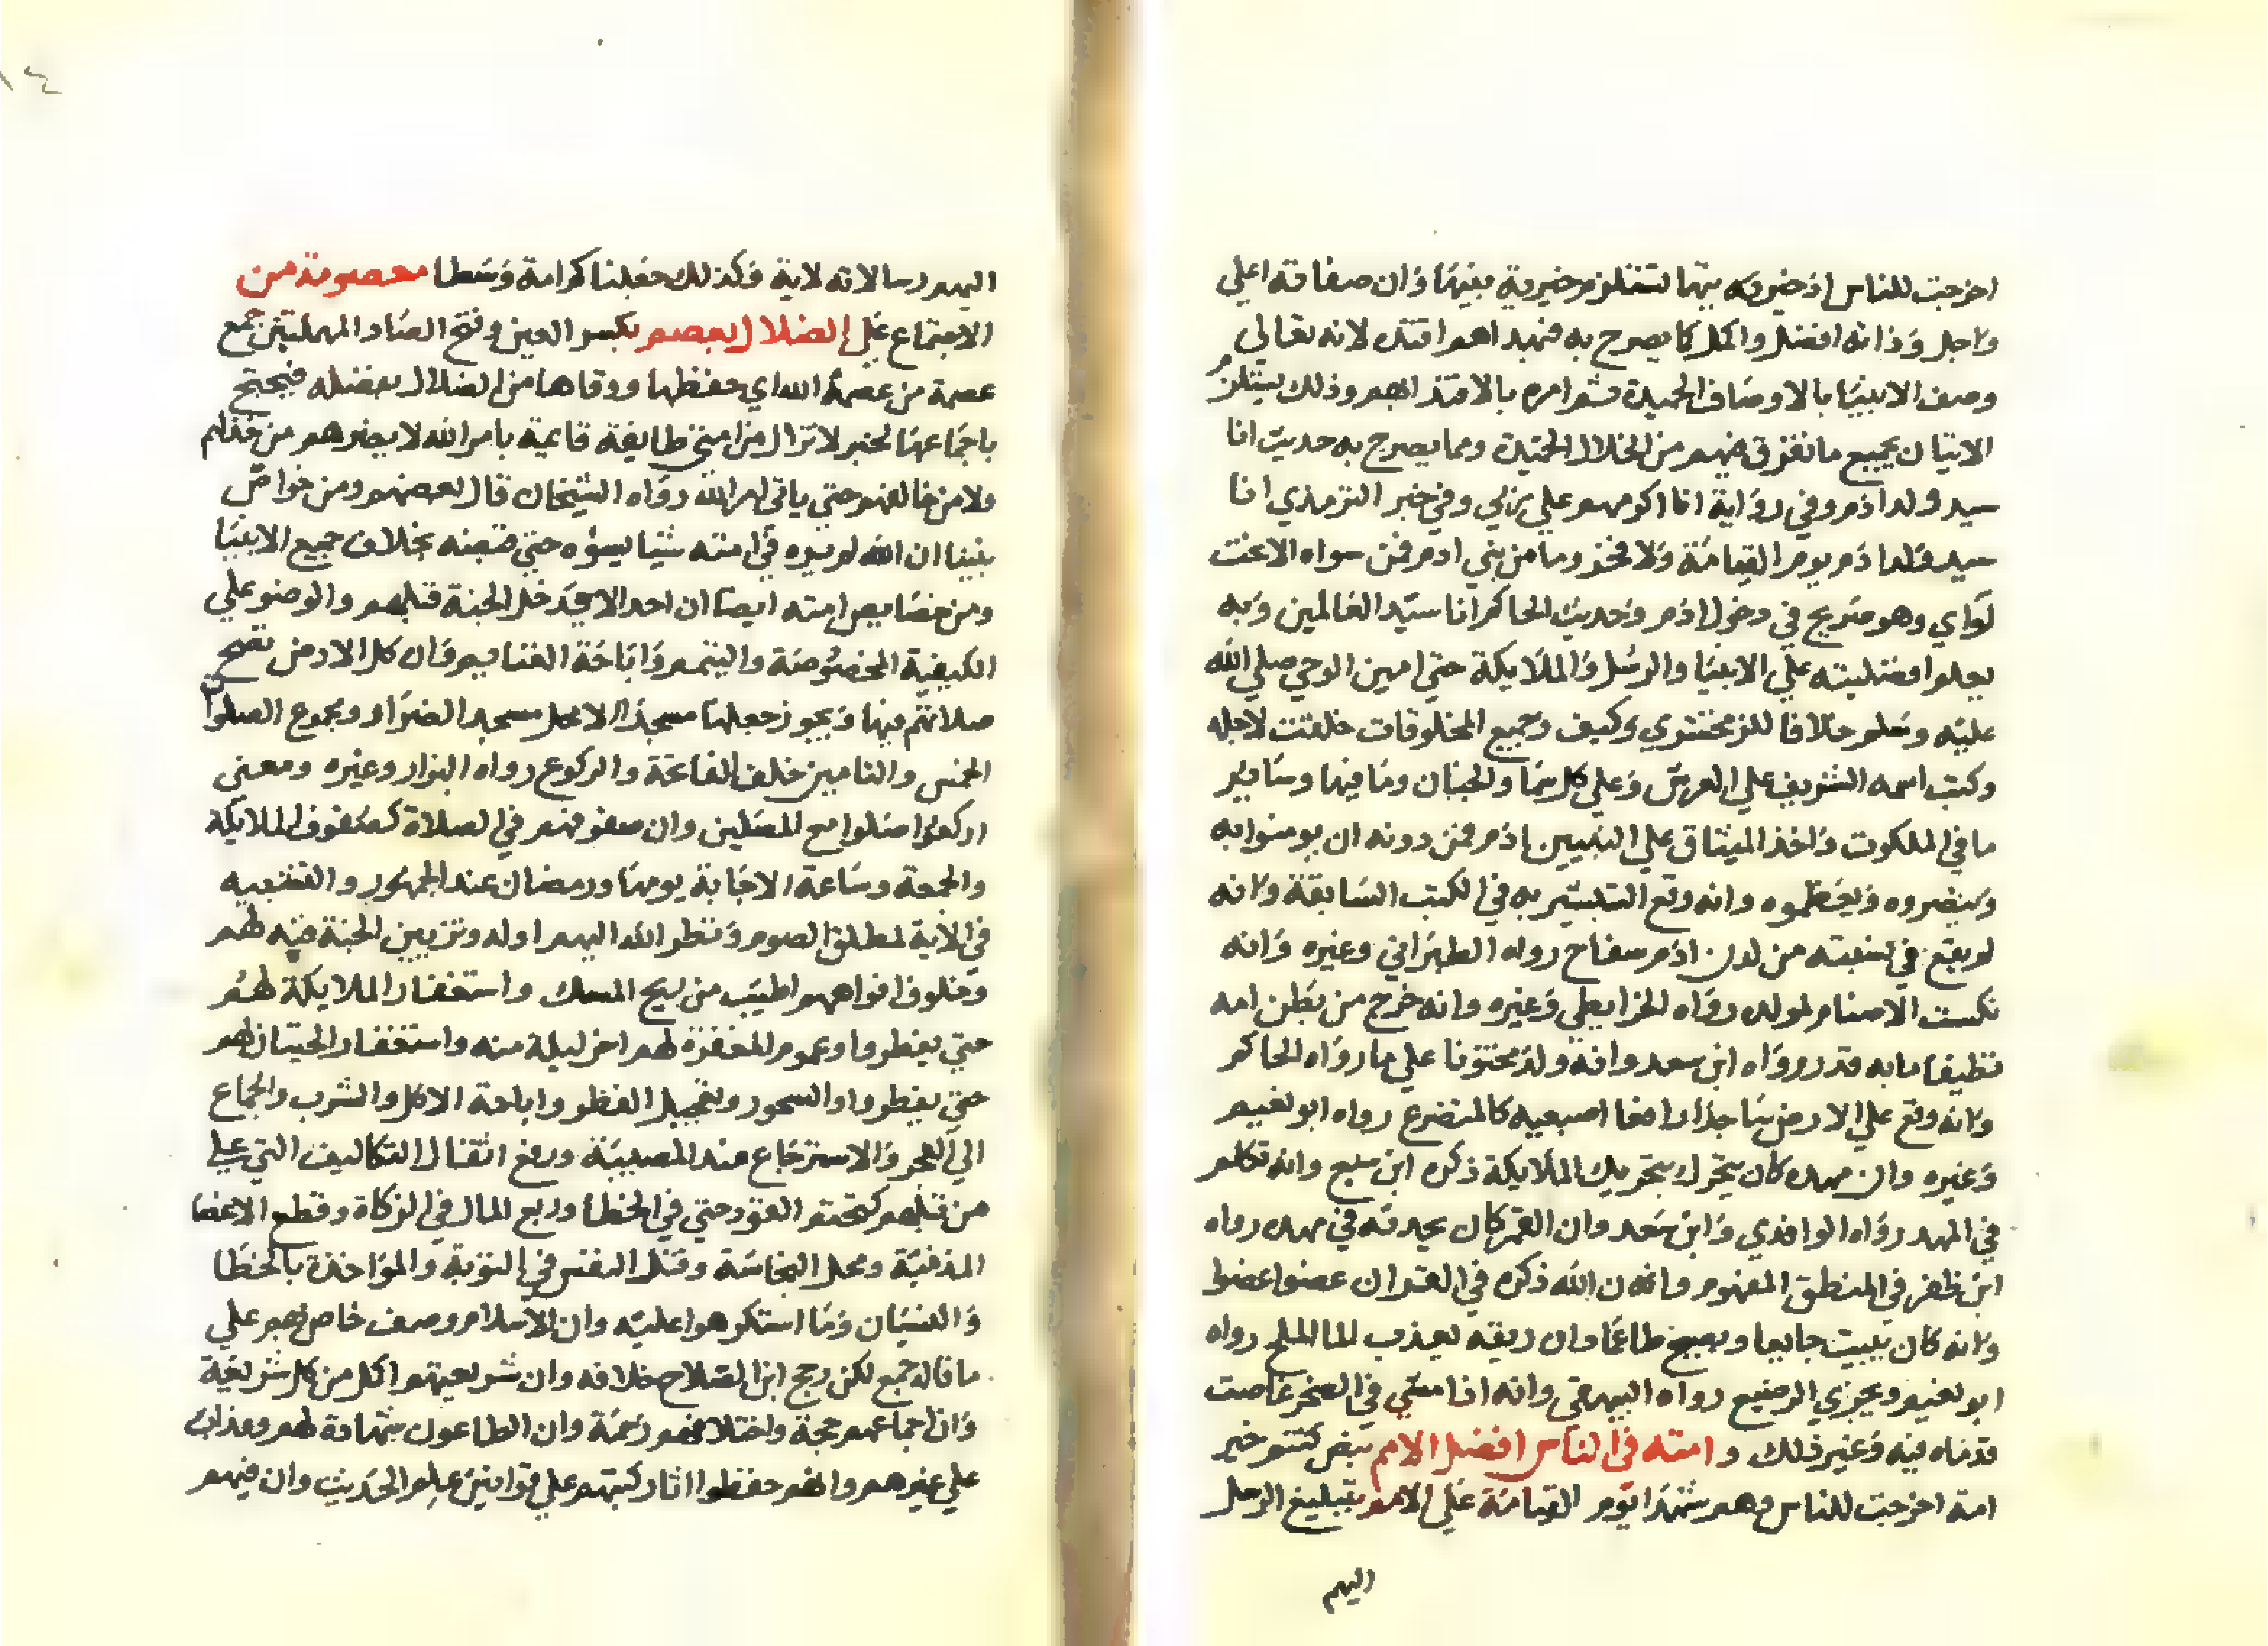 اخرجت للناس اذ خيريته بتها تستلزم خيرية نبيها وان صفاته اعلي
واجل وذاته افضل واكمل كما يصرح به فبهداهم اقتده لانه تعالي
وصف الانبيا بالاوصاف الحميدة ثم امره بالاقتدا بهم وذلك يستلزم
الاتيان بجميع ما تفرق فيهم من الخلال الحميدة ومما يصرح به حديث انا
سيد ولد ادم وفي رواية انا اكرمهم علي ربي وفي خبر الترمذي انا
سيد ولد ادم يوم القيامة ولا فخر وما من بني ادم فمن سواه الا تحت
لواي وهو صريح في دخول ادم وحديث الحاكم انا سيد العالمين وبه
يعلم افضليته علي الانبيا والرسل والملايكة حتي امين الوحي صلي الله
عليه وسلم خلافا للزمخشري وكيف وجميع المخلوقات خلقت لاجله
وكتب اسمه الشريف علي العرش وعلي كل سما والجنان وما فيها وساير
ما في الملكوت واخذ الميثاق علي النبيين ادم فمن دونه ان يومنوا به
وينصروه ويعظموه وانه وقع التبشير به في الكتب السابقة وانه
لم يقع في نسبته من لدن ادم سفاح رواه الطبراني وغيره وانه
نكست الاصنام لمولده رواه الخرايطي وغيره وانه خرج من بطن امه
نظيفا ما به قذر رواه ابن سعد وانه ولد مختونا علي ما رواه الحاكم
وانه وقع علي الارض ساجدا رافعا اصبعيه كالمتضرع رواه ابو نعيم
وغيره وان مهده كان يتحرك بتحريك الملايكة ذكره ابن سبع وانه تكلم
في المهد رواه الواقدي وابن سعد وان القمر كان يحدثه في مهده رواه
ابن ظفر في المنطق المفهوم وانه ان الله ذكره في القران عضوا عضوا
وانه كان يبيت جايعا ويصبح طاعما وان ريقه يعذب الما الملح رواه
ابو نعيم ويجزي الرضيع رواه البيهقي وانه اذا مشي في الصخر غاصت
قدماه فيه وغير ذلك وامته في الناس افضل الامم بنص كنتم خير
امة اخرجت للناس وهم شهدا يوم القيامة علي الامم بتبليغ الرسل
اليهم
اليهم رسالاته لاية وكذلك جعلناكم امة وسطا معصومة من
الاجتماع علي الضلال بعصم بكسر العين وفتح الصاد المهملتين جمع
عصمة من عصمه الله اي حفظها ووقاها من الضلال بفضله فيحتج
باجماعها لخبر لا تزال من امتي طايفة قايمة بامر الله لا يضرهم من خذلهم
ولا من خالفهم حتي ياتي امر الله رواه الشيخان قال بعضهم ومن خواص
نبينا ان الله لم يره في امته شيا يسؤه حتي قبضه بخلاف جميع الانبيا
ومن خصايص امته ايضا ان احدا لا يدخل الجنة قبلهم والوضو علي
الكيفية المخصوصة والتيمم واباحة الغنايم وان كل الارض تصح
صلاتهم فيها ويجوز جعلها مسجدا الا محل مسجد الضرار ومجموع الصلوات
الخمس والتامين خلف الفاتحة والركوع رواه البزار وغيره ومعني
اركعوا صلوا مع المصلين وان صفوفهم في الصلاة كصفوف الملايكة
والجمعة وساعة الاجابة يومها ورمضان عند الجمهور والتشبيه
في الاية لمطلق الصوم ونظر الله اليهم اوله وتزيين الجنة فيه لهم
وخلوف افواههم اطيب من ريح المسك واستغفار الملايكة لهم
حتي يفطروا وعموم المغفرة لهم اخر ليلة منه واستغفار الحيتان لهم
حتي يفطروا والسحور وتعجيل الفطر واباحة الاكل والشرب والجماع
الي الفجر والاسترجاع عند المصيبة ورفع اثقال التكاليف التي علي
من قبلهم كتحتم القود حتي في الخطا وربع المال في الزكاة وقطع الاعضا
المذنبة ومحل النجاسة وقتل النفس في التوبة والمواخذة بالخطا
والنسيان وما استكرهوا عليه وان الاسلام وصف خاص بهم علي
ما قاله جمع لكن رجح ابن الصلاح خلافه وان شريعتهم اكمل من كل شريعة
وان اجماعهم حجة واختلافهم رحمة وان الطاعون شهادة لهم وعذاب
علي غيرهم وانهم حفظوا اثار كتبهم علي قوانين علم الحديث وان فيهم